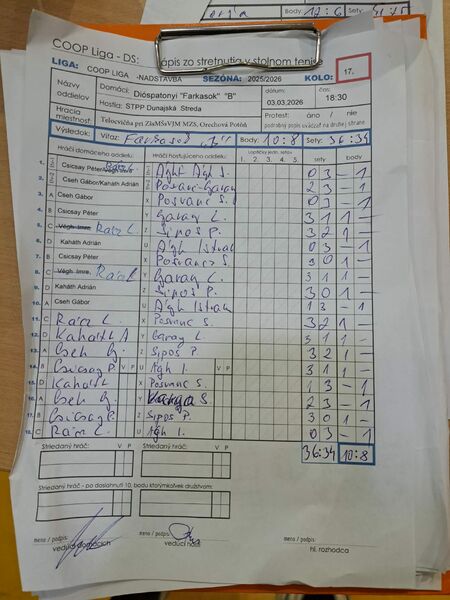 Body: 12:6 Sety:
COOP Liga - DS: zápis zo stretnutia v stolnom tenise
LIGA: COOP LIGA -NADSTAVBA SEZÓNA: 2025/2026 KOLO: 17.
Názvy oddielov Domáci: Dióspatonyi "Farkasok" "B" dátum: čas:
Hostia: STPP Dunajská Streda 03.03.2026 18:30
Hracia miestnosť: Telocvičňa pri ZšsMŠsVJM MZŠ, Orechová Potôň Protest: áno / nie
podrobný popis uvádzať na druhej strane
Výsledok: Víťaz: Farkasok "B" Body: 10:8 Sety: 36:34
Hráči domáceho oddielu: Hráči hosťujúceho oddielu: Loptičky v jedn. setoch sety body
1. 2. 3. 4. 5.
1. Csicsay Péter/Végh Imre Rácz Ágh S. 0 3 - 1
2. Cseh Gábor/Kaháth Adrián 2 3 - 1
3. A Cseh Gábor X Posvanc S. 0 3 - 1
4. B Csicsay Péter Y Garay L. 3 1 1 -
5. C Végh Imre, Rácz L. Z Sipos P. 3 2 1 -
6. D Kaháth Adrián U Ágh István 0 3 - 1
7. B Csicsay Péter X Posvanc S. 3 0 1 -
8. C Végh Imre, Rácz L Y Garay L. 3 1 1 -
9. D Kaháth Adrián Z Sipos P. 3 0 1 -
10. A Cseh Gábor U Ágh István 1 3 - 1
11. C Rácz L. X Posvanc S. 3 2 1 -
12. D Kaháth A Y Garay L. 3 1 1 -
13. A Cseh G. Z Sipos P. 3 2 1 -
14. B Csicsay P. V P U Ágh I. V P 3 1 1 -
15. D Kaháth X Posvanc S. 1 3 - 1
16. A Cseh G. Y Varga S. 2 3 - 1
17. B Csicsay P. Z Sipos P. 3 0 1 -
18. C Rácz L. U Ágh I. 0 3 - 1
Striedaný hráč: V P Striedaný hráč: V P 36:34 10:8
Striedaný hráč - po dosiahnutí 10. bodu ktorýmkoľvek družstvom:
V P V P
meno / podpis: meno / podpis: meno / podpis:
vedúci domácich vedúci hostí hl. rozhodca